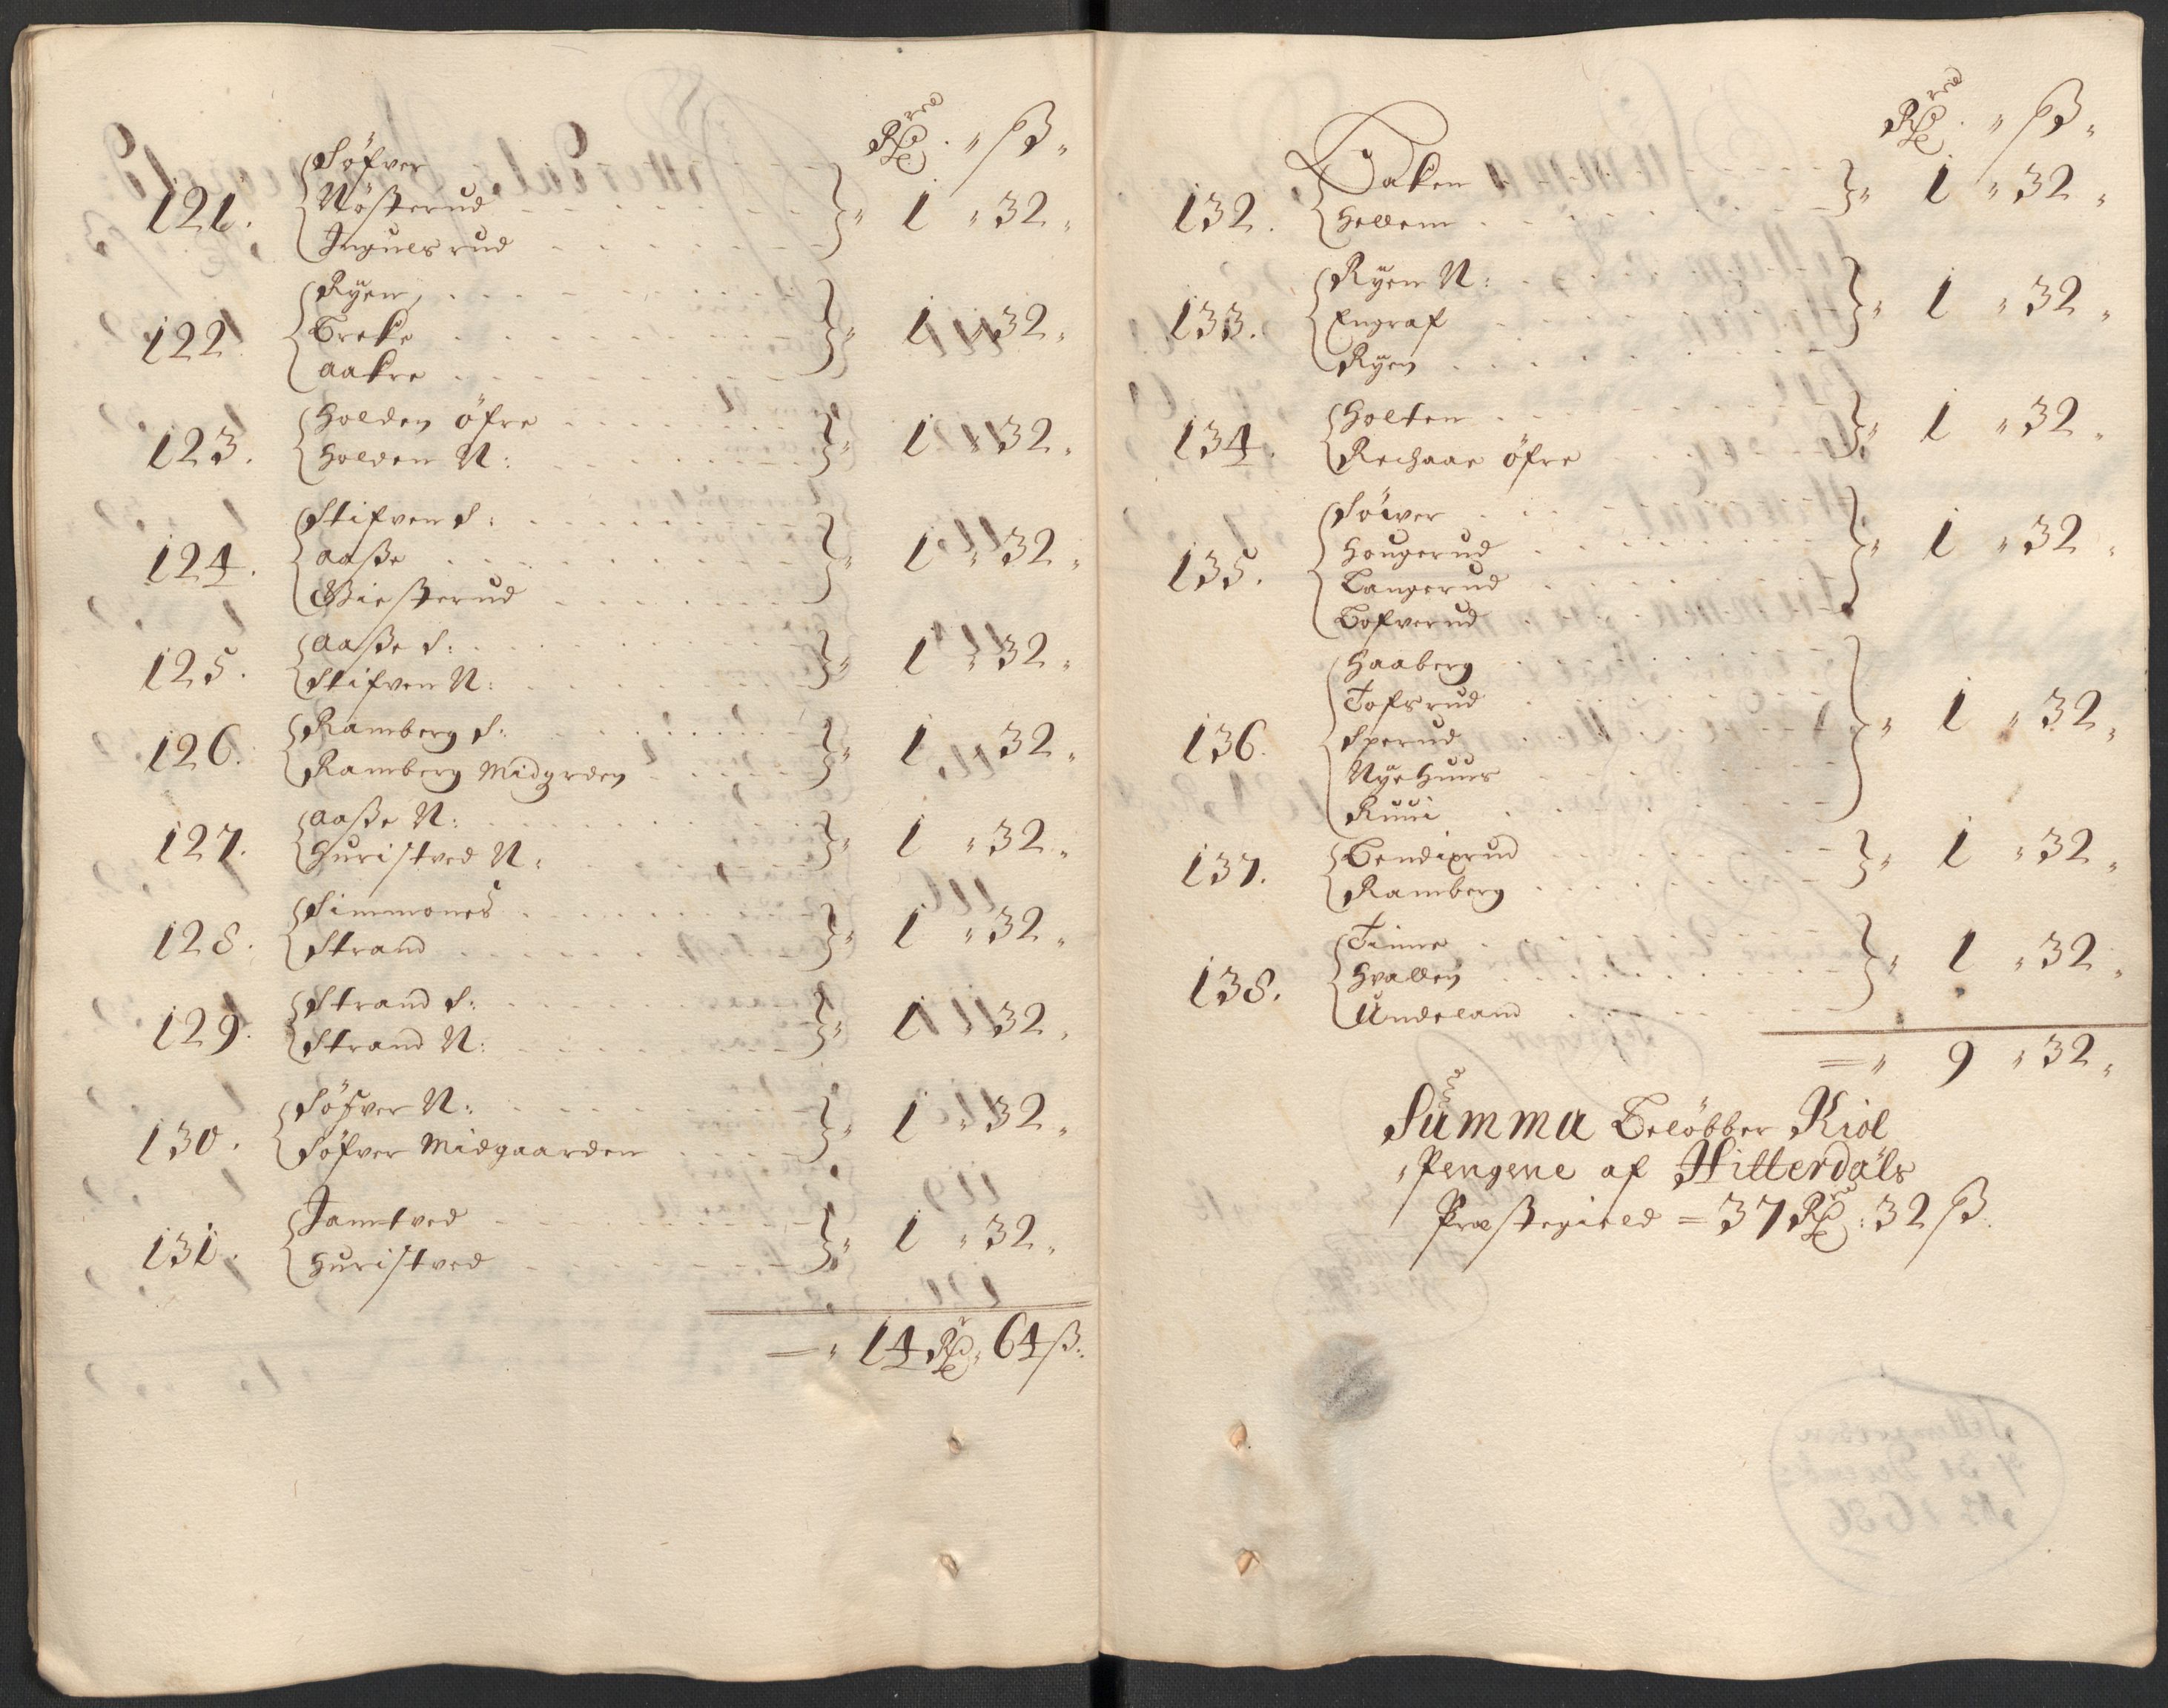 Rdr. " ß "
121. Söfver
Nösterud
Ingulsrud " 1 " 32 "
122 Ryen
Breke
Aakre " 1 " 32 "
123. Holden öfre
Holden N: " 1 " 32 "
124. Stifven S:
Aaße
Giesterud " 1 " 32 "
125. Aaße S:
Stifven N: " 1 " 32 "
126. Ramberg S:
Ramberg Midgrden " 1 " 32 "
127. Aaße N:
Huristved N: " 1 " 32 "
128. Simmones
Strand " 1 " 32 "
129. Strand S:
Strand N: " 1 " 32 "
130. Söfver N:
Söfver Midgaarden " 1 " 32 "
131. Jamtved
Huristved " 1 " 32 "
= " 14 Rdr " 64 ß:
Rdr. " ß "
132. Baken
Hellem " 1 " 32 "
133. Ryen N:
Engraf
Ryen " 1 " 32 "
134. Holten
Rechaae öfre " 1 " 32 "
135. Söwer
Hougerud
Bangerud
Tofverud " 1 " 32 "
136. Haaberg
Tofsrud
Sperud
Nyehuus
Ruui " 1 " 32 "
137. Bendixrud
Ramberg " 1 " 32 "
138. Tinne
Hvallen
Undeland " 1 " 32 "
= " 9 " 32 "
Summa Belöbber Kiöl
Pengene af Hitterdals
Præstegield = 37 Rdr: 32 ß.